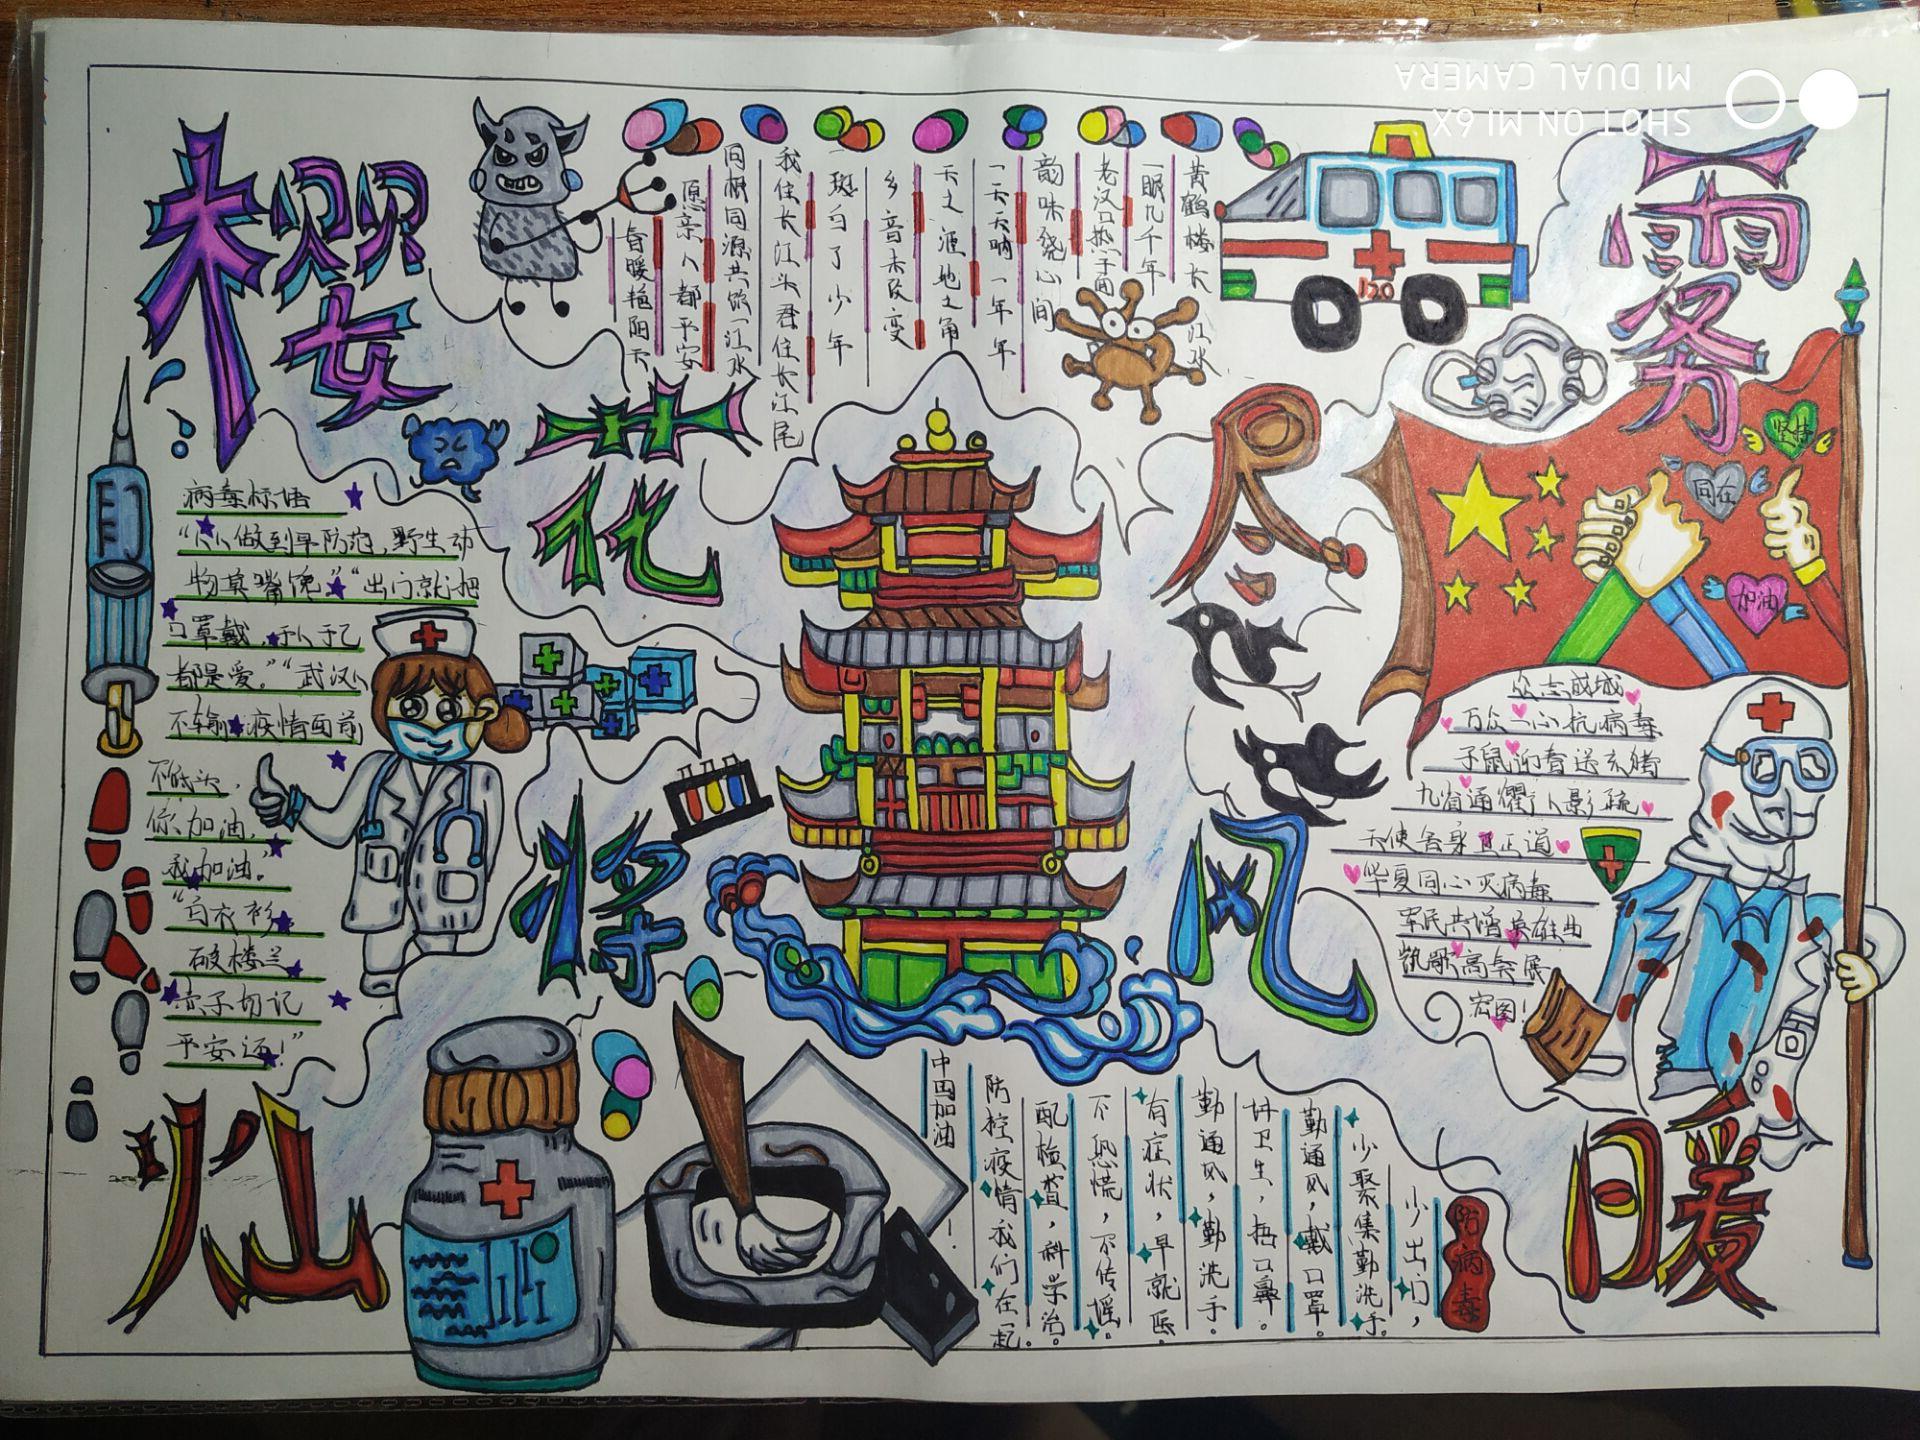 樱花灿
将
雾尽风暖
黄鹤楼长江水
一眼几千年
老汉口热干面
韵味绕心间
一天天呐一年年
天之涯地之角
乡音未改变
一斑白了少年
我住长江头君住长江尾
同根同源共饮一江水
愿亲人都平安
春暖艳阳天
120
病毒标语
“人人做到早防范,野生动
物莫嘴馋”“出门就把
口罩戴,于人于己
都是爱。”“武汉人
不输,疫情面前
不低头,
你加油,
我加油。”
“白衣衫
破楼兰
赤子切记
平安还!”
坚持
同在
加油
众志成城
万众一心抗病毒
子鼠迎春送亥猪
九省通衢人影疏
天使舍身卫正道
华夏同心灭病毒
军民共谱英雄曲
凯歌高奏展
宏图!
防病毒
少出门,
少聚集勤洗手。
勤通风,戴口罩。
讲卫生,捂口鼻。
勤通风,勤洗手。
有症状,早就医。
不恐慌,不传谣。
配检查,科学治。
防控疫情我们在一起。
中国加油!
SHOT ON MI 6X
MI DUAL CAMERA